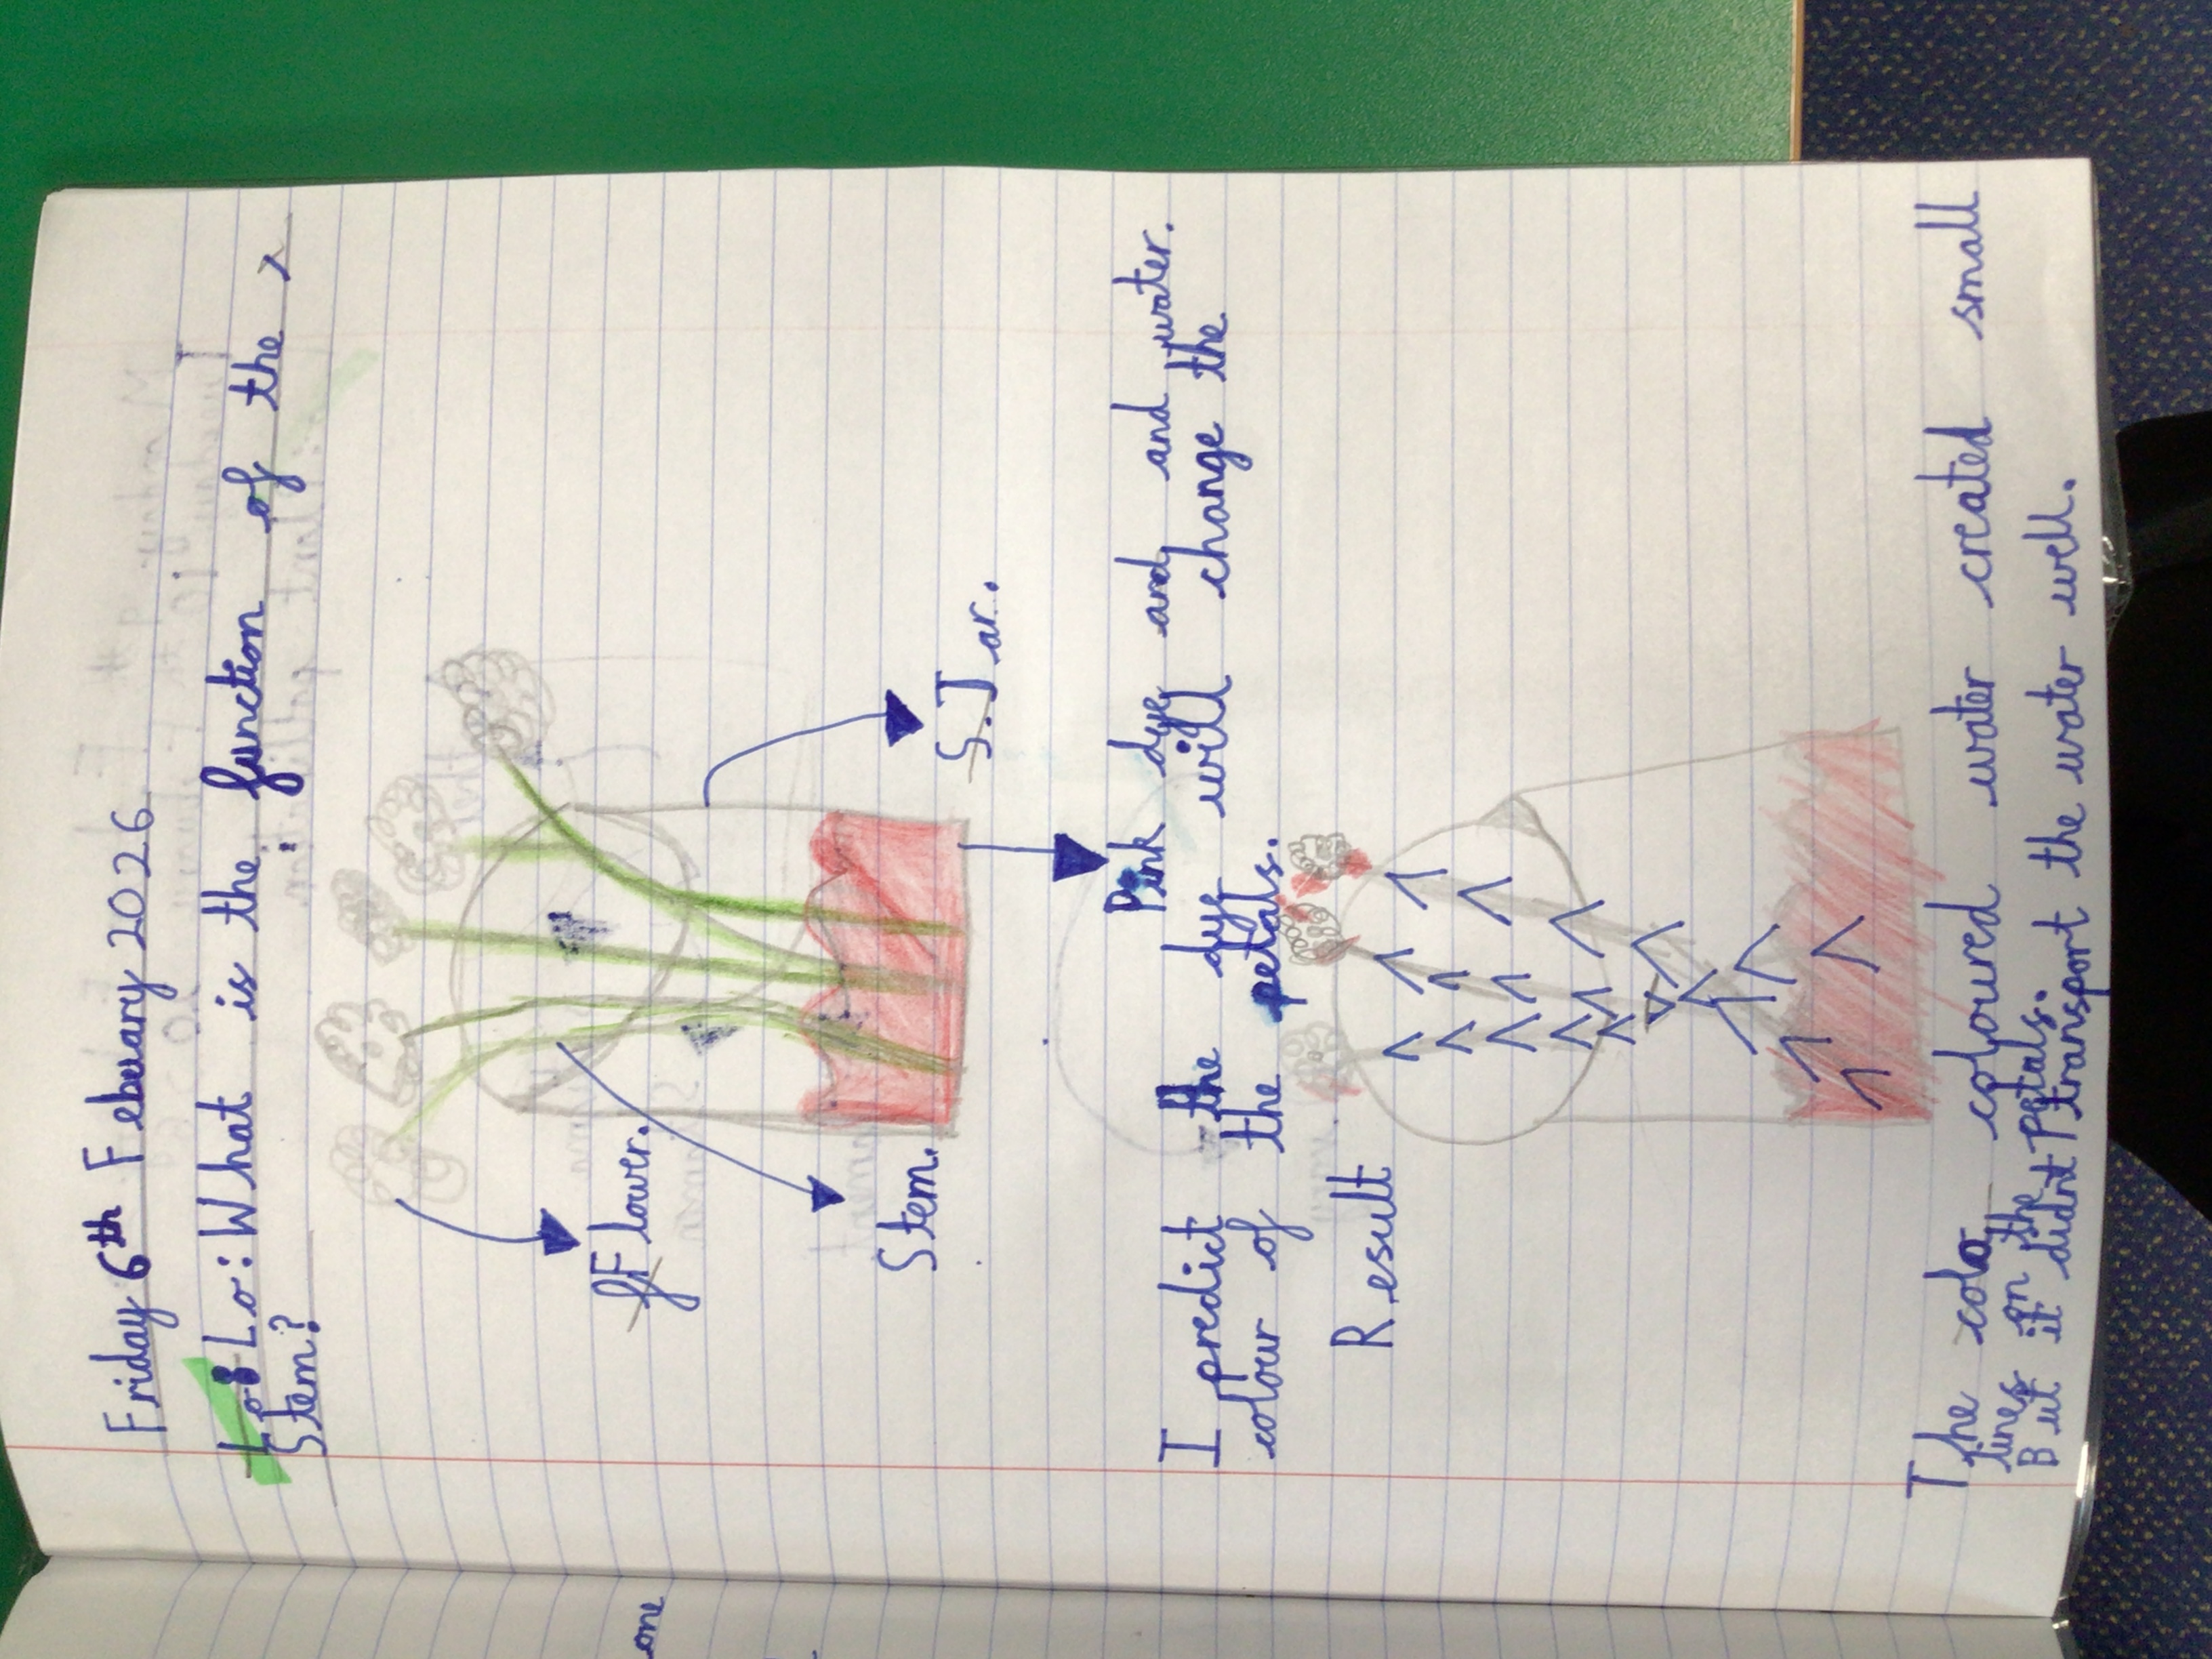 Friday 6th Febuary 2026
Lo: What is the function of the
Stem?
Flower.
Stem.
Jar.
Pink dye and and water.
I predict the dye will change the
colour of the petals.
Result
The cola coloured water created small
lines on the Petals.
But it didnt transport the water well.
one